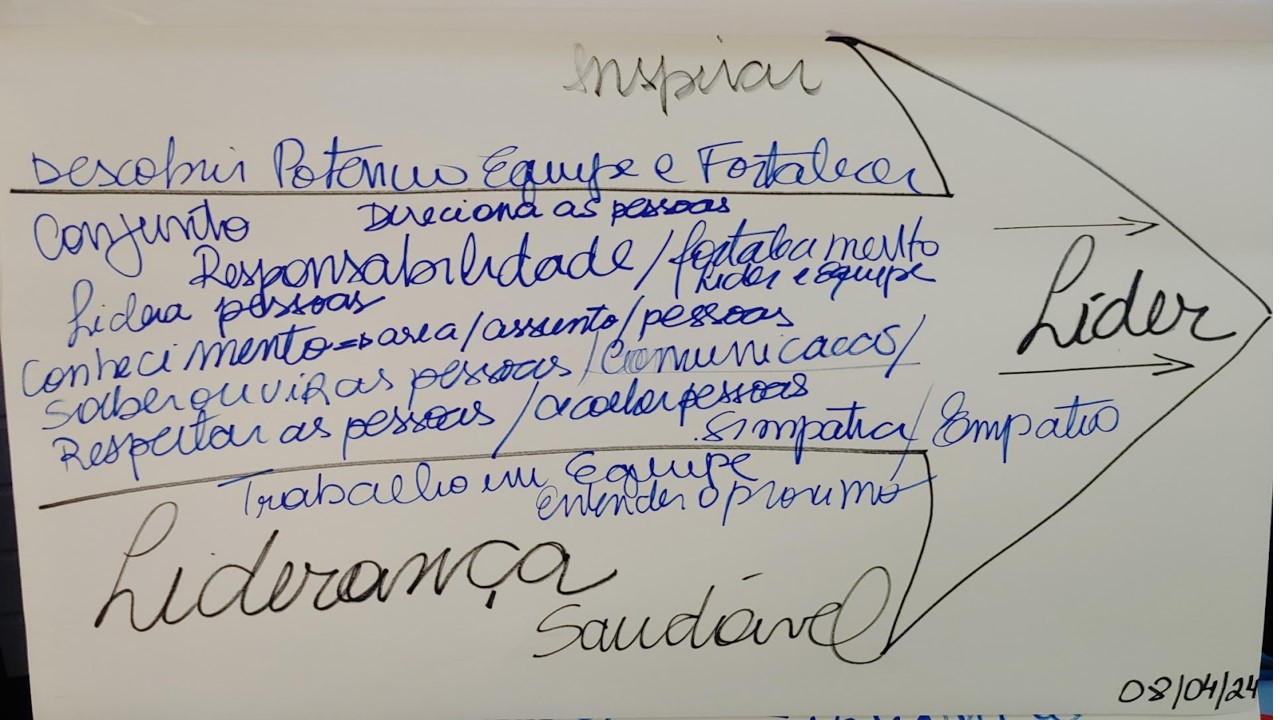 Inspirar
Descobrir Potencia Equipe e Fortalecer
Conjunto Direciona as pessoas
Responsabilidade / fortalecimento
Lider e Equipe
Lidera pessoas
Conhecimento → area / assunto / pessoas
Saber ouvir as pessoas / Comunicacao /
Respeitar as pessoas / acolher pessoas
Simpatia / Empatia
Trabalho em Equipe
entender o proximo
Líder
Liderança
Saudável
08/04/24